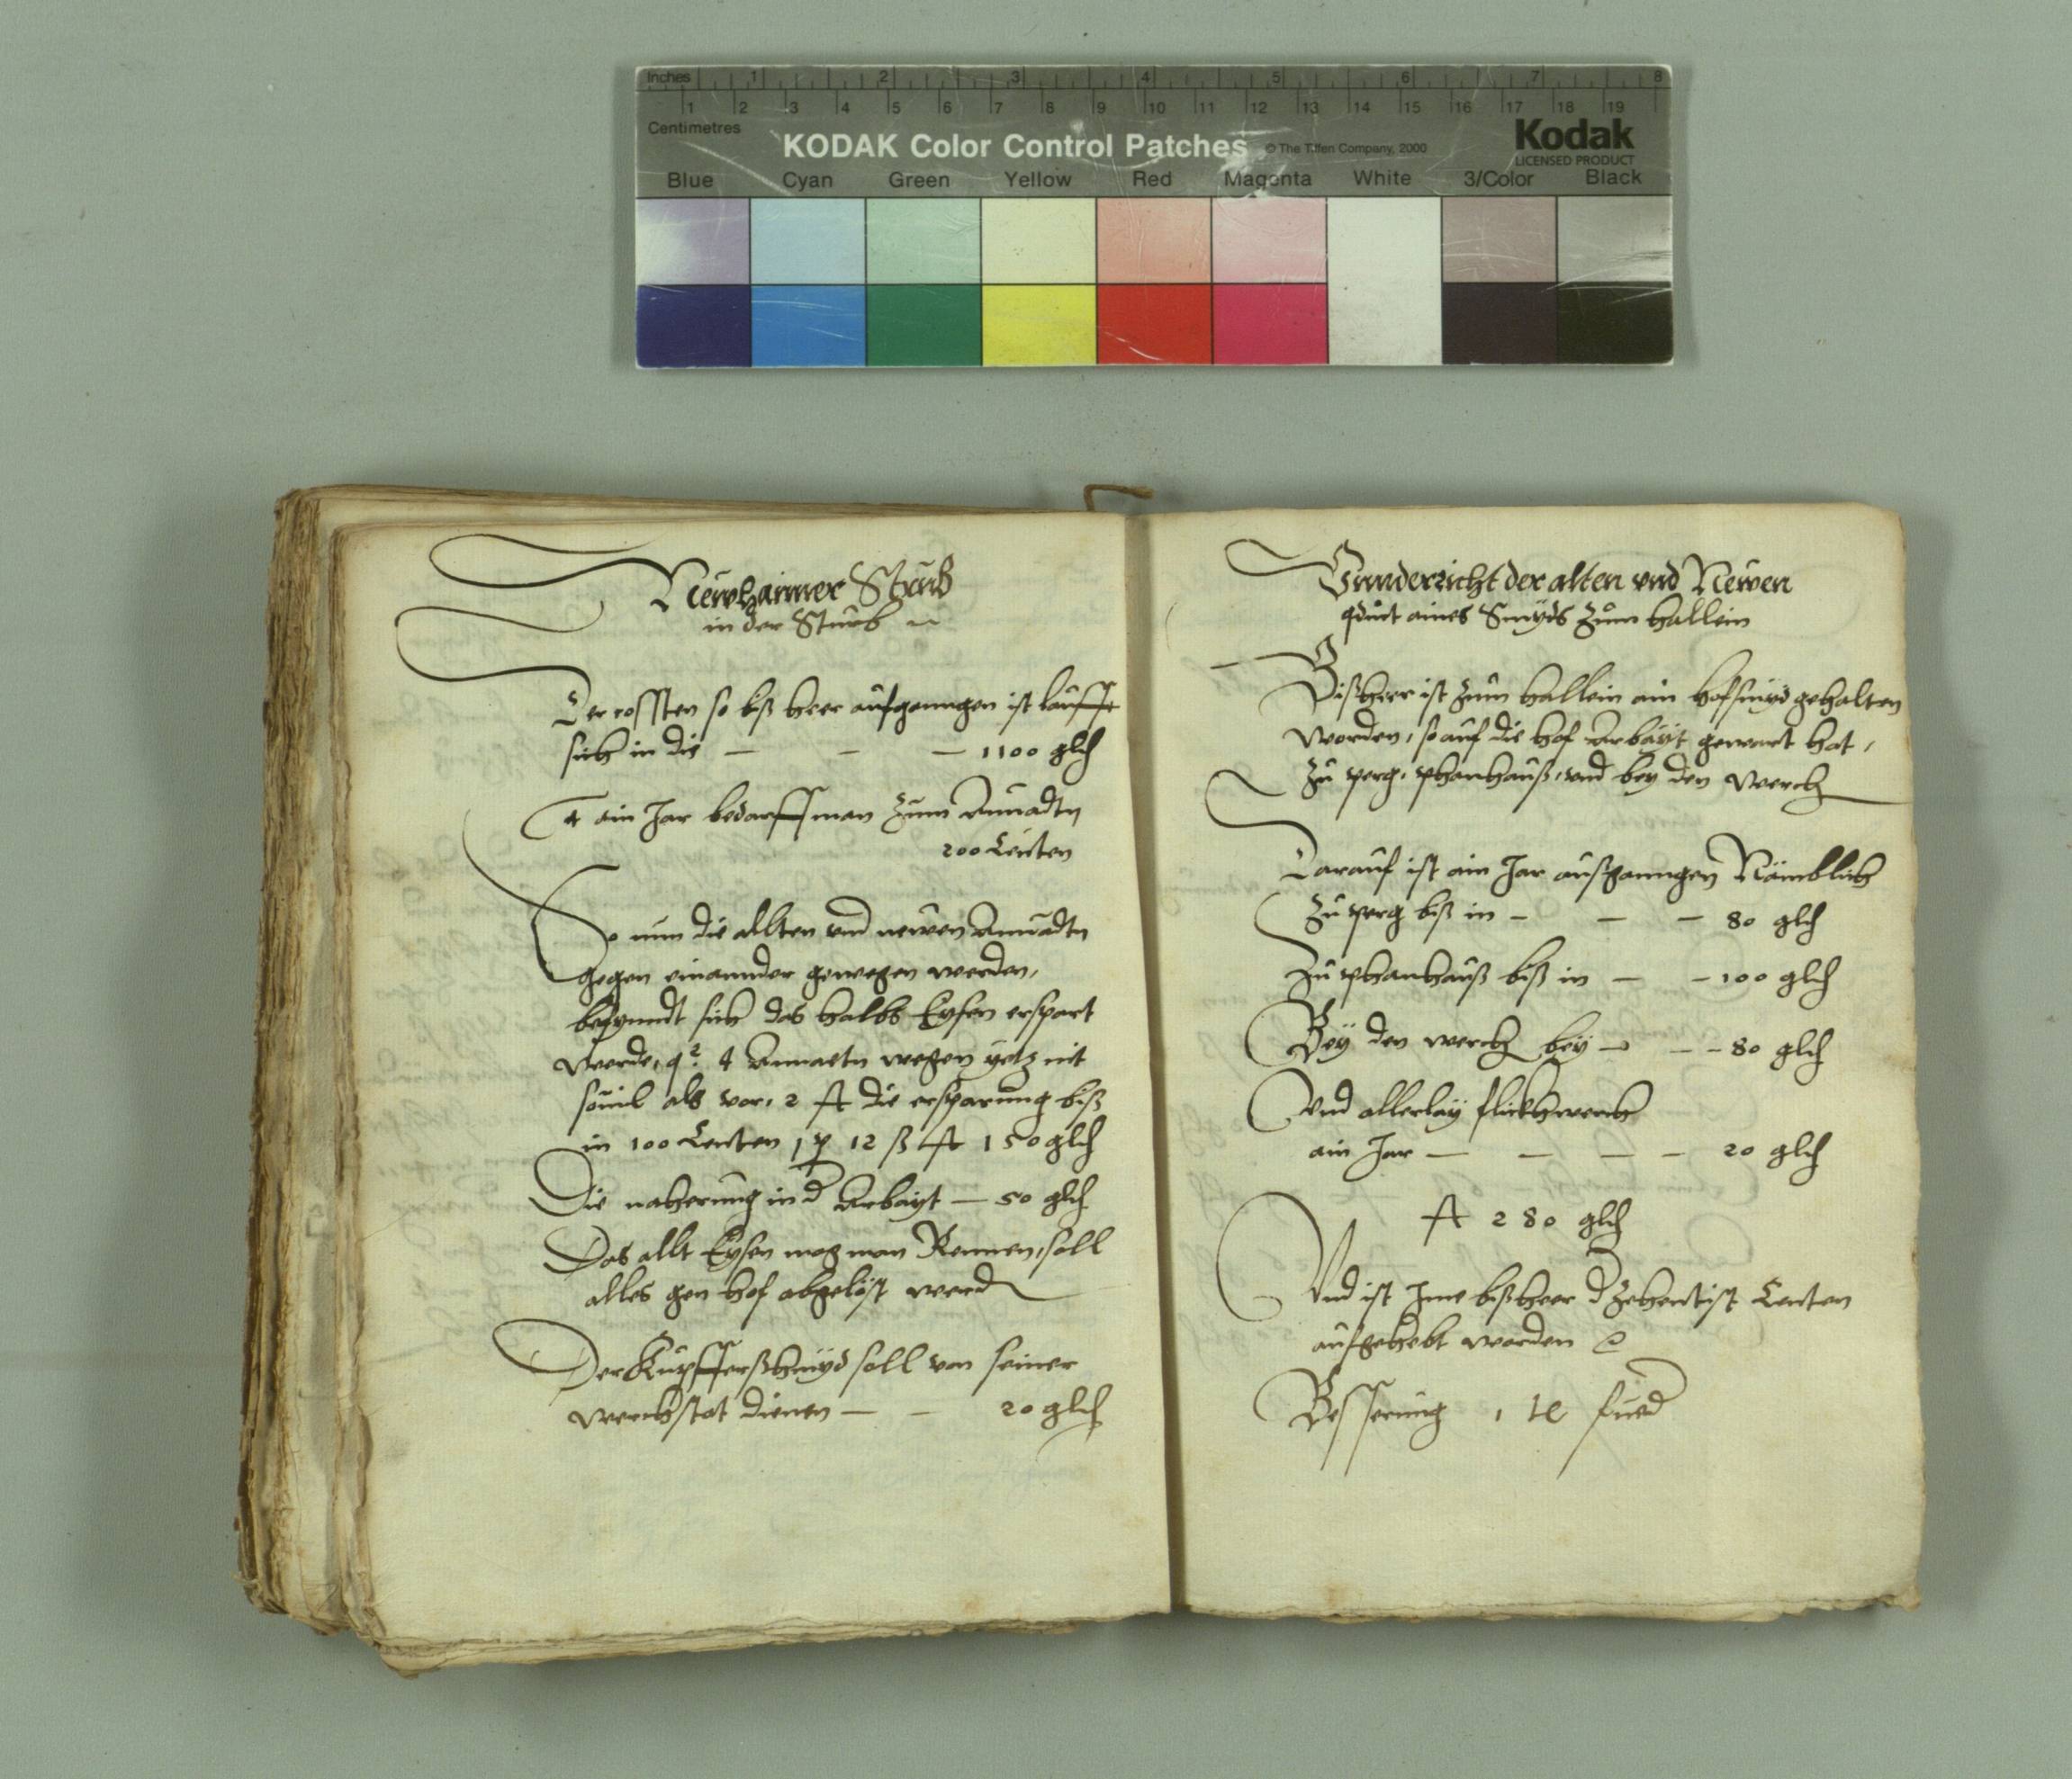 Inches 1 2 3 4 5 6 7 8
1 2 3 4 5 6 7 8 9 10 11 12 13 14 15 16 17 18 19
Centimetres
KODAK Color Control Patches © The Tiffen Company, 2000
Kodak
LICENSED PRODUCT
Blue Cyan Green Yellow Red Magenta White 3/Color Black
in der Stub
Der cossten so biß heer aufgenngen ist laufft
sich in die — — — 1100
ain Jar bedarff man zum
200 Centen
So nun die allten vnd newen
gegen einannder gewegen werden,
befynndt sich das halbs Eysen erspart
werde, wegen yetz nit
souil als vor, 2 die ersparung biß
in 100 Centen 12 ß 150
Die naherung in d Arbayt — 50
Das allt Eysen mag man Rennen, soll
alles gen hof abgelöst werd
Der Kupfferßhmyd soll von seiner
werchstat dienen — — 20
Vnnderricht der alten vnd Newen
aines Smyds zum hallein
Bißheer ist zum hallein ain hofsmyd gehalten
worden, so auf die hof Arbayt gewart hat,
zu perg, phanhauß, vnd bey den werch
Darauf ist ain Jar außganngen Nämblich
zu perg biß in — — — 80
zu phanhauß biß in — — 100
Bey den werch bey — — 80
vnd allerlay flickhwerch
ain Jar — — — — 20
280
Vnd ist Ime bißheer d zehentist Centen
aufgehebt worden
Besserung